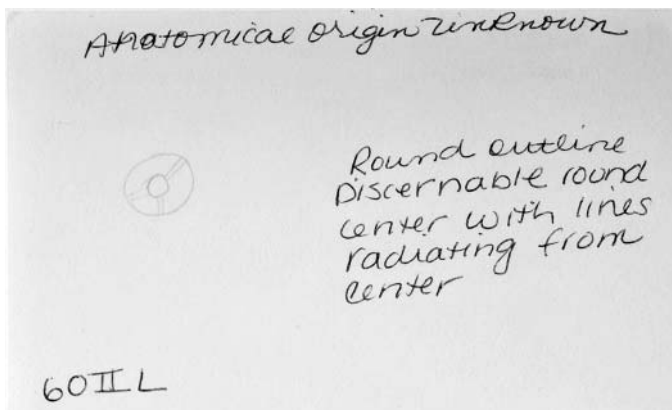 Anatomical origin unknown
Round outline
Discernable round
center with lines
radiating from
center
60 II L